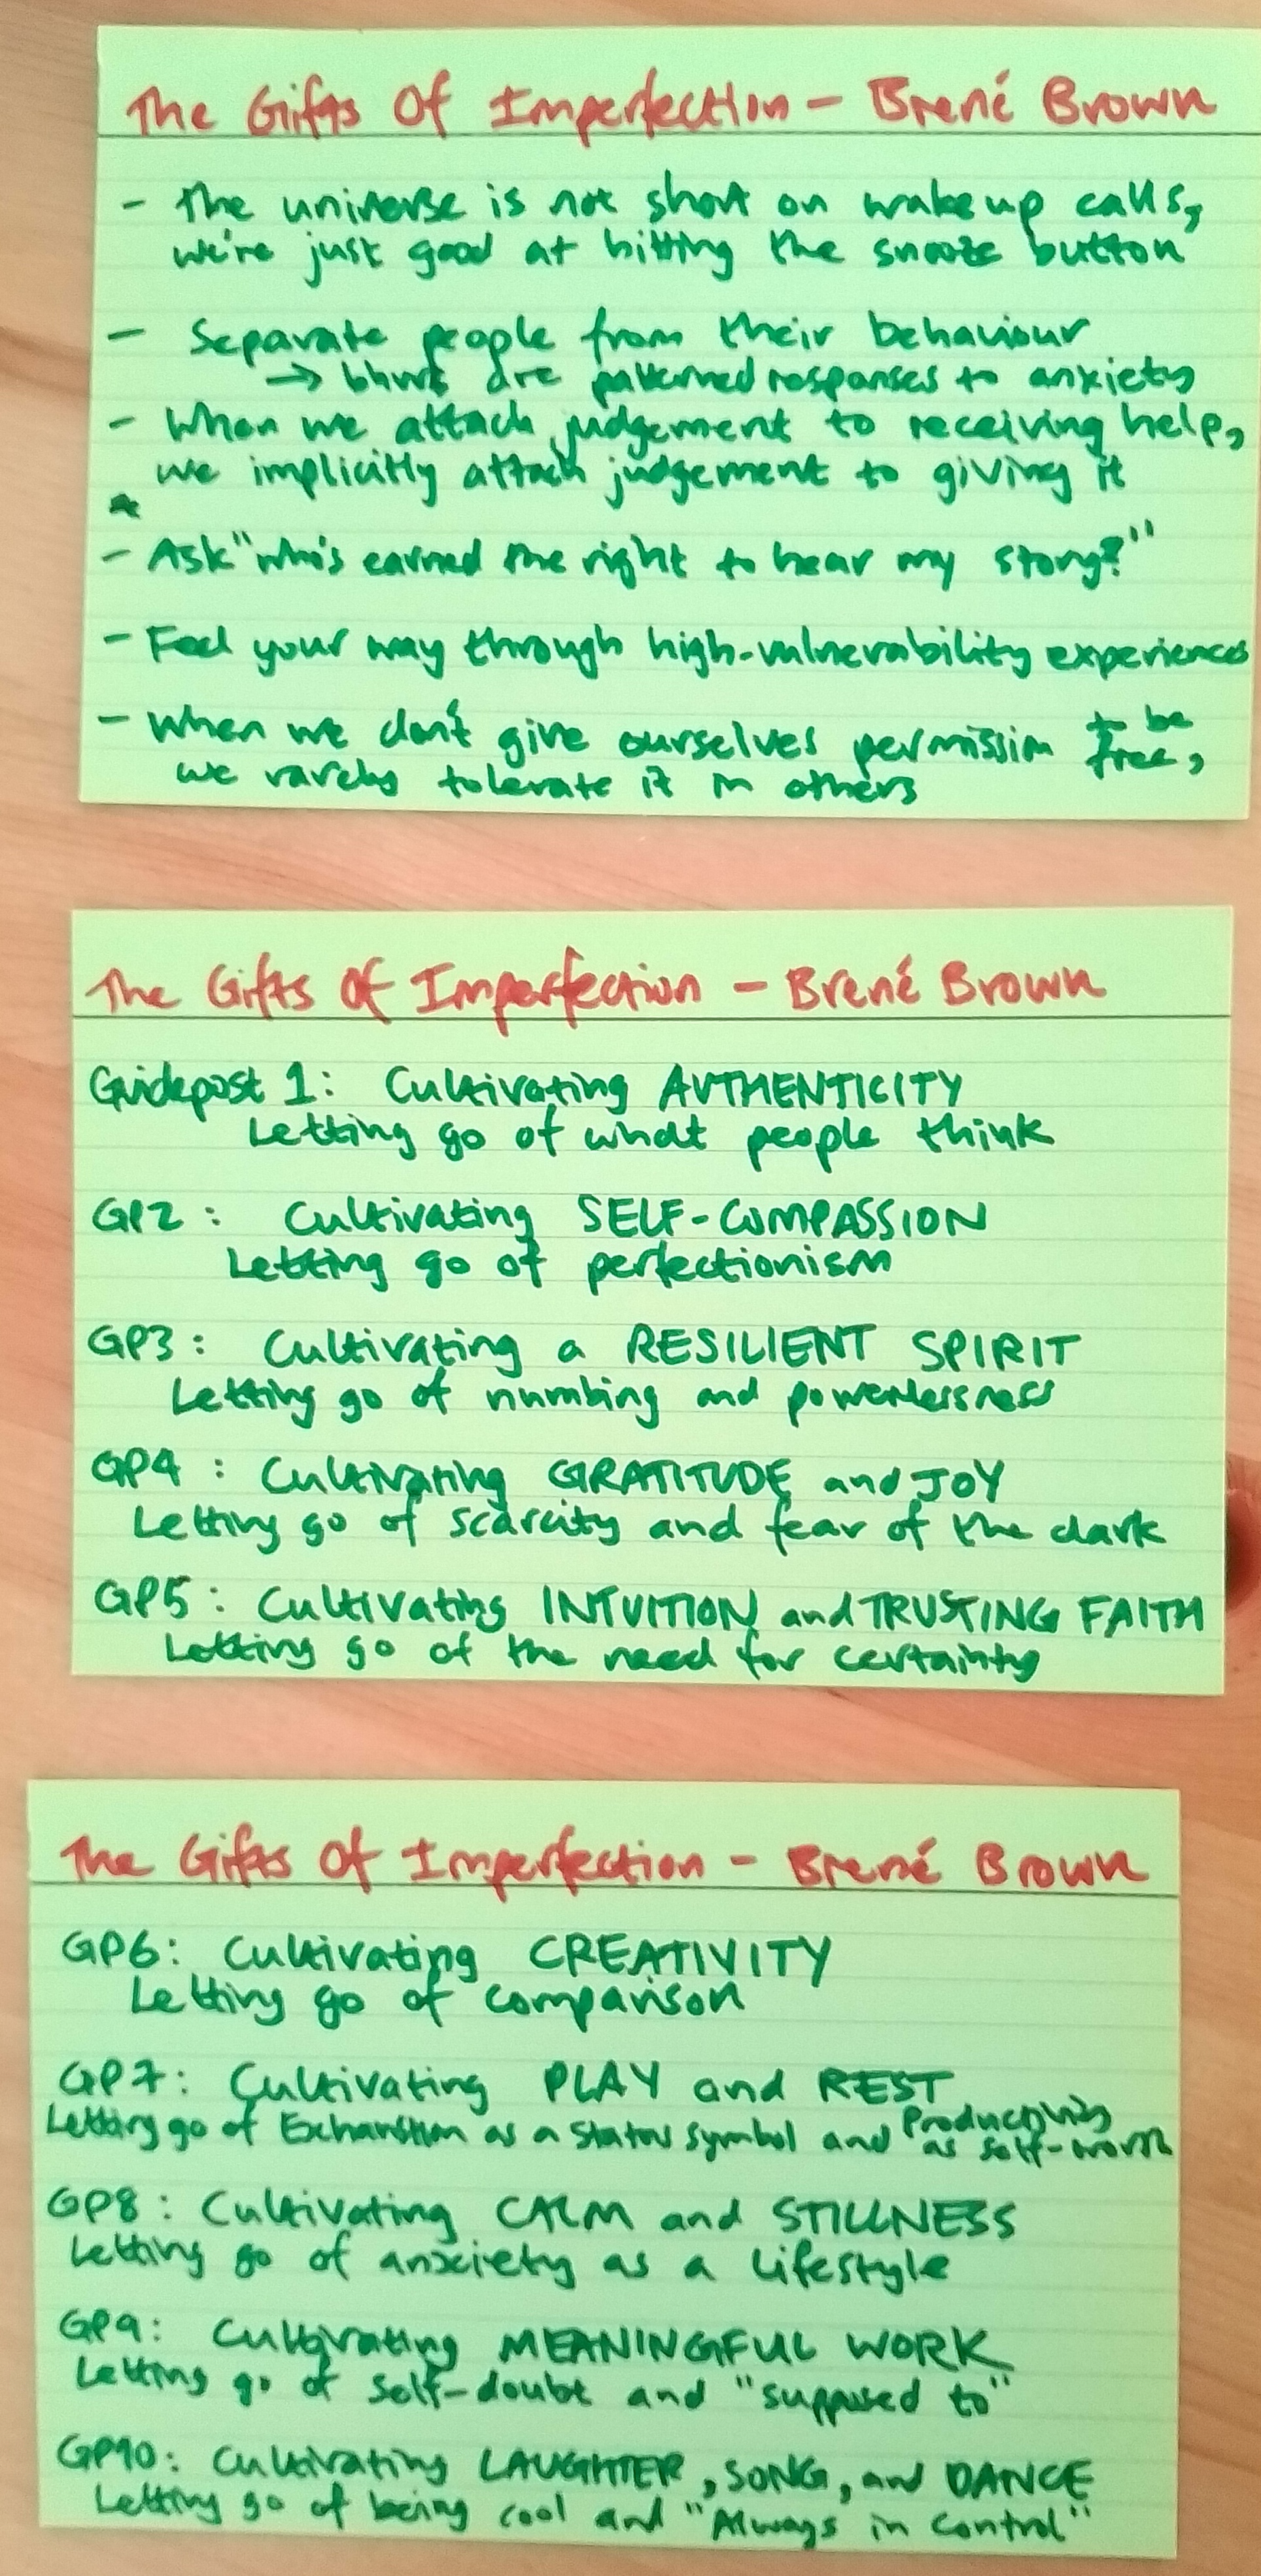 The Gifts Of Imperfection - Brené Brown
- The universe is not short on wake up calls,
we're just good at hitting the snooze button
- Separate people from their behaviour
→ bhvrs are patterned responses to anxiety
- When we attach judgement to receiving help,
we implicitly attach judgement to giving it
*
- Ask "who's earned the right to hear my story?"
- Feel your way through high-vulnerability experiences
- When we don't give ourselves permission to be free,
we rarely tolerate it in others
The Gifts Of Imperfection - Brené Brown
Guidepost 1: Cultivating AUTHENTICITY
Letting go of what people think
GP2: Cultivating SELF-COMPASSION
Letting go of perfectionism
GP3: Cultivating a RESILIENT SPIRIT
Letting go of numbing and powerlessness
GP4: Cultivating GRATITUDE and JOY
Letting go of scarcity and fear of the dark
GP5: Cultivating INTUITION and TRUSTING FAITH
Letting go of the need for certainty
The Gifts Of Imperfection - Brené Brown
GP6: Cultivating CREATIVITY
Letting go of comparison
GP7: Cultivating PLAY and REST
Letting go of Exhaustion as a status symbol and Productivity as self-worth
GP8: Cultivating CALM and STILLNESS
Letting go of anxiety as a lifestyle
GP9: Cultivating MEANINGFUL WORK
Letting go of self-doubt and "supposed to"
GP10: Cultivating LAUGHTER, SONG, and DANCE
Letting go of being cool and "Always in Control"